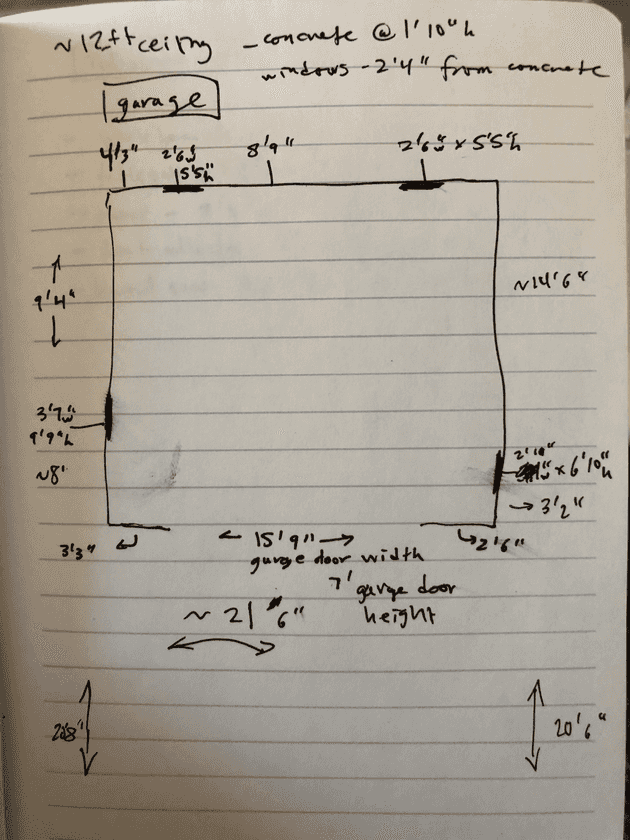 ~12ft ceiling - concrete @ 1'10"h
windows - 2'4" from concrete
garage
4'3" 2'6"w 8'9" 2'6"w x 5'5"h
5'5"h
9'4" ~14'6"
3'7"w
9'9"h
2'10"
~8' "w x 6'10"h
→ 3'2"
3'3" ← 15'9" → 2'6"
garge door width
7' garge door
height
~ 21'6"
20'6"